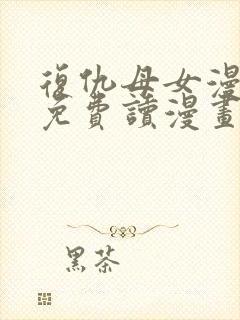 復仇母女漫
免費讀漫畫
黑茶